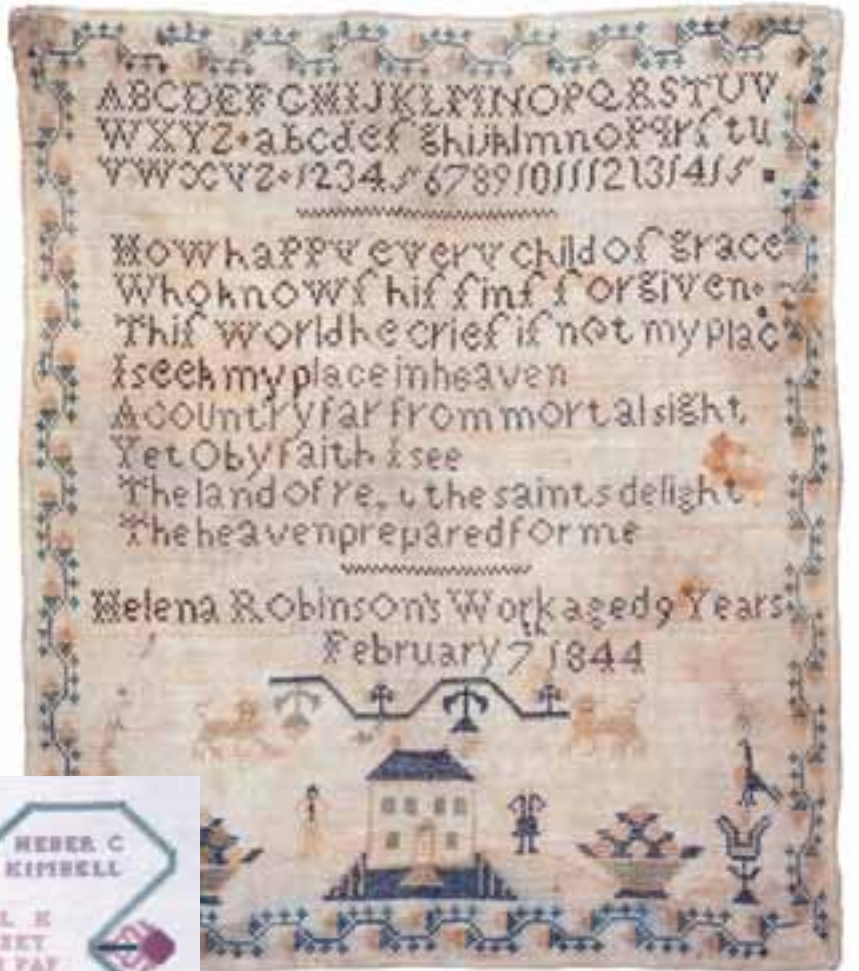 ABCDEFGHIJKLMNOPQRSTUV
WXYZ abcdefghijklmnopqrſtu
vwxyz 123456789101112131415
How happy every child of grace
Who knowſ hiſ ſinſ forgiven
Thiſ world he crieſ iſ not my plac
I seek my place in heaven
A country far from mortal sight
Yet O by faith I see
The land of the saints delight
The heaven prepared for me
Helena Robinson's Work aged 9 Years
February 7th 1844
HEBER C
KIMBELL